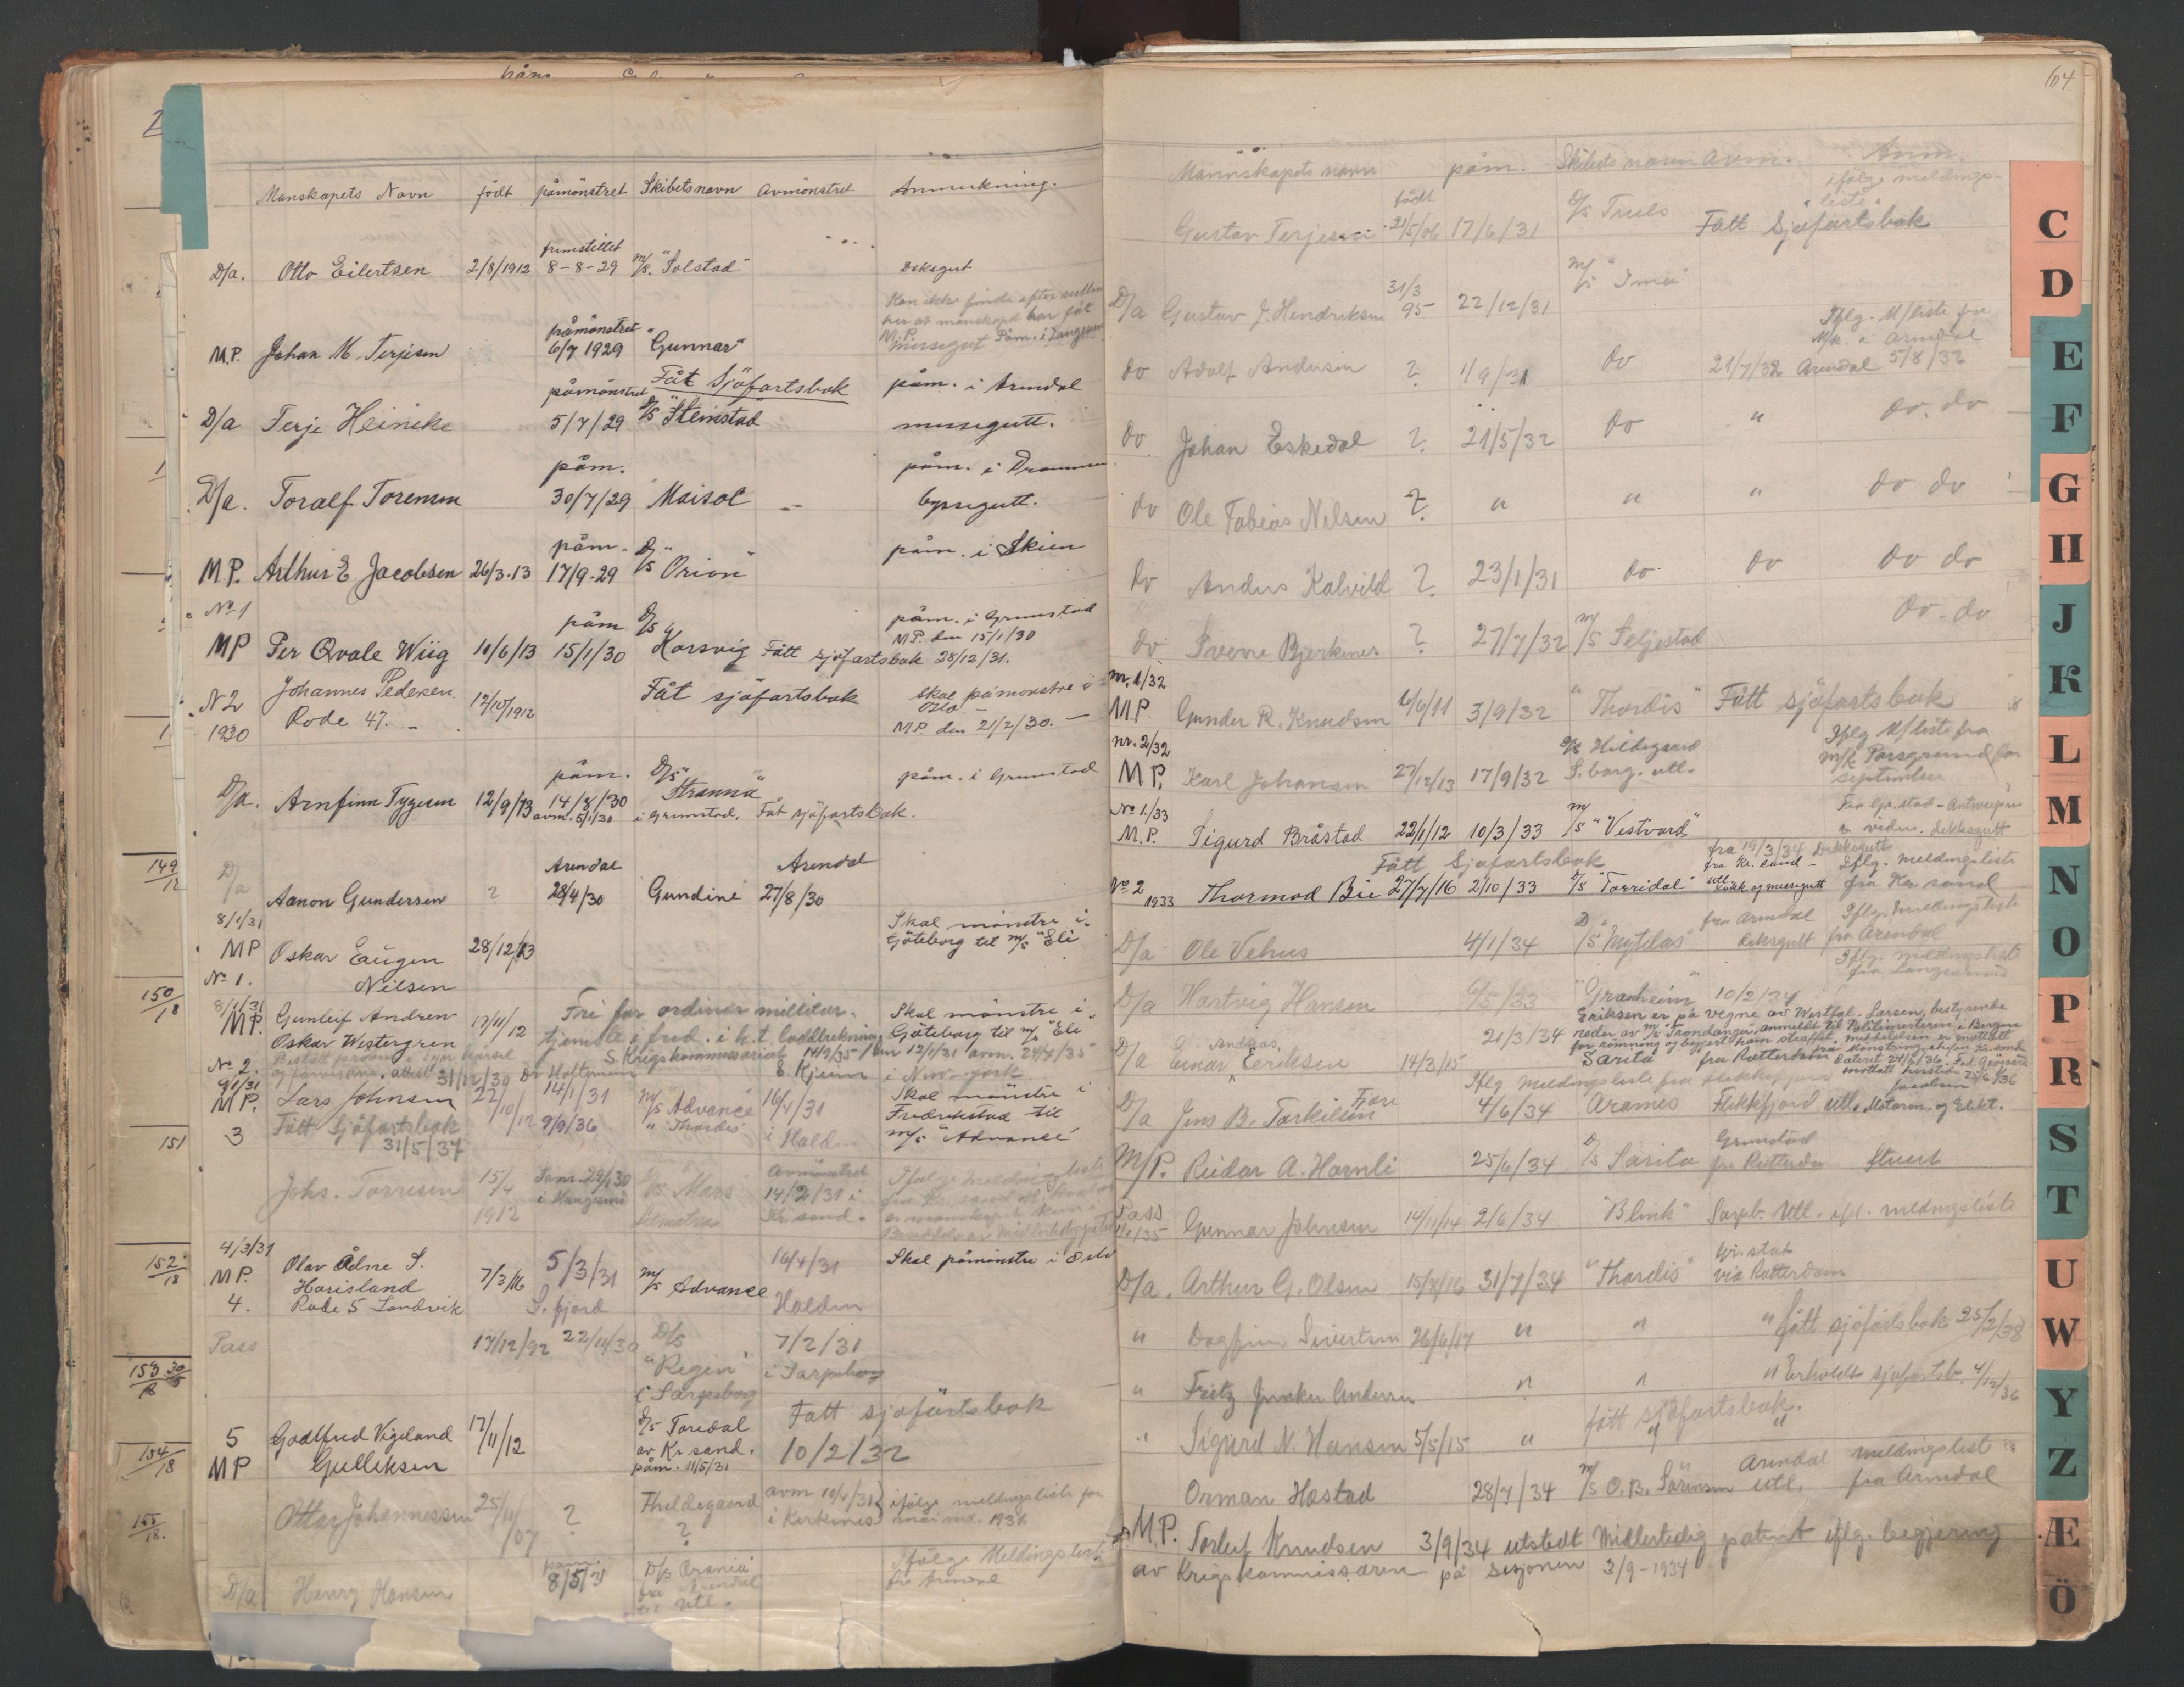 Manskapets Navn født påmönstret Skibetsnavn Avmönstret Anmerkning.
fremstillet
D/a. Otto Eilertsen 2/8/1912 8-8-29 M/S. "Solstad" Deksgut
Kan ikke finde efter
her at manskapet har fåt
M.P. Påm. i Langesund
påmönstret
M.P. Johan M. Terjesen 6/7 1929 "Gunnar" messegut
Fåt Sjöfartsbok påm. i Arendal
påmönstret
D/a Terje Heincke 5/7/29 D/S "Steinstad" messegutt.
påm. påm. i Drammen
D/a. Toralf Torensen 30/7/29 Maisol -- byssegutt.
påm. påm. i Skien
M.P. Arthur E Jacobsen 26/3-13 17/9-29 D/S "Orion"
No 1 påm D/S påm. i Grimstad
M.P. den 15/1/30
MP Per Qvale Wiig 10/6/13 15/1/30 Korsvig Fått sjöfartsbok 28/12/31.
N 2 Johannes Pedersen 12/10/1912 Fåt sjöfartsbok skal påmönstre i Oslo -
1930 Rode 47. - M.P. den 21/2/30. -
påm. D/S påm. i Grimstad
D/a. Arnfinn Tygesen 12/9/13 14/8/30 "Stranna"
avm. 5/1/30 i Grimstad. Fåt sjöfartsbok.
149/12
Arendal Arendal
D/a Aanon Gundersen ? 28/4/30 Gundine 27/8/30
8/1/31 Skal mönstre i
MP Oskar Eugen 28/12/13 Göteborg til M/S "Eli"
No 1. Nilsen
150/18
8/1/31 Gunleif Andrew 17/11/12 Fri for ordinær militær- Skal mönstre i
MP. Oskar Westergren tjeneste i fred. i h.t. loddtrekning Göteborg til M/S "Eli"
No 2. Bestått prøven i syn hørsel S. Krigskommissariat 14/9/35 12/1/31 avm. 24/7/35
og farvesans. attest 31/12/30 Dr Holtsmann E Kjem i New-york
9/1/31 Lars Johnsen 22/10/12 14/1/31 M/S "Advance" 16/1/31 Skal mönstre i
MP. Fredrikstad til
3 Fått Sjöfartsbok 9/9/36 " Thordis i Halden M/S "Advance"
151
31/5/37
Johs. Torresen 15/4 1912 29/1/30 i Haugesund D/S "Mars" avmönstret 14/2/31 i Kr sand. Ifølge meldingsliste
152/18
4/3/31 Olav Ådne S. 5/3/31 16/4/31 Skal påmönstre i Oslo
MP. Harisland 7/3/16 M/S Advance
4. Rode 5 Landvik S. fjord Halden
Pass 17/12/92 22/11/30 D/S "Regin" i Sarpsborg 7/2/31 i Sarpsborg
153/18 30/5
5 Godtfred Vigeland 17/11/12 D/S Toredal Fått sjøfartsbok
MP Gulliksen av Kr sand. 10/2/32
påm. 11/5/31
154/18
Ottar Johannessen 25/11/07 ? Theldegaard ? avm 10/4/31 i Kirkenes ifølge meldingsliste for mai md. 1931
155/18.
D/a Henry Hansen påm. 8/5/31 D/S Arania fra Arendal til utl. Ifølge Meldingsliste fra Arendal
104
Mannskapets navn født påm. Skibets navn avm. Anm.
ifølge meldings-
liste
Gustav Terjesen 21/5/06 17/6/31 D/S Truls Fått Sjøfartsbok
D/a Gustav J. Hendriksen 31/3 95 22/12/31 M/S "Ima"
Iflg. M/liste fra
M/k. i Arendal
do Adolf Andersen ? 1/9/31 do 21/7/32 Arendal 5/8/32
do Johan Eskedal ? 21/5/32 do " do. do
do Ole Tobias Nilsen ? " " " do do
do Anders Kalvild ? 23/1/31 do do do do
do Sverre Bjerkenes ? 27/7/32 M/S Seljestad do. do
nr. 1/32
MP. Gunder R. Knudsen 6/6/11 3/9/32 "Thordis" Fått sjöfartsbok
nr. 2/32 Iflg M/liste fra
M/k Porsgrund for september
M.P. Karl Johansen 27/12/13 17/9/32 D/S Hildegaard S. borg. utl.
No 1./33 Fra Gr. stad - Antwerpen
M.P. Sigurd Bråstad 22/1/12 10/3/33 M/S "Vestvard" o videre. dekksgutt
Fått Sjøfartsbok fra 19/3/34 Dekksgutt
No 2 1933 Thormod Bie 27/7/16 2/10/33 D/S "Torridal" fra Kr. sand - utl. Kokk og messegutt Iflg. meldingsliste fra Kr sand
D/a Ole Vehus 4/1/34 D/S "Mytilus" fra Arendal deksgutt Iflg. meldingsliste fra Arendal
Iflg. meldingsliste fra Langesund
D/a Hartvig Hansen 6/5/33 "Granheim" 10/2/34
Eriksen er på vegne av Westfal-Larsen, bestyrende
21/3/34 reder av M/S Trondanger, anmeldt til Politimesteren i Bergen
for römning og begjært ham straffet. Meddelelsen er mottatt
D/a Einar Andreas Eeriksen 14/3/15 Sarita fra Rotterdam fra Mönstringschefen Kr. sand datert 24/6/36.
mottatt herstin 25/6/36
Iflg Meldingsliste fra Flekkefjord
D/a Jens B. Torkilsen Fjære 4/6/34 Arames Flekkfjord utl. Motorm. og Elekt.
M/P. Reidar A. Hornli 25/6/34 D/S Sarita Grimstad fra Rotterdam Stuert
Pass Gunnar Johnsen 14/11/14 2/6/34 "Blink" Sarpb. Utl. ifl. meldingsliste
D/a. Arthur G. Olsen 15/8/16 31/7/34 "Thordis" Gr. stat via Rotterdam
" Dagfinn Sivertsen 26/6/17 " " " fått sjöfartsbok 25/2/38
" Fritz Andersen " " " Erholdt sjøfartsb. 4/12/36
" Sigurd N. Hansen 5/5/15 " fått sjøfartsbok. " "
Orman Hastad 28/7/34 M/S O.B. Sörensen Arendal utl. meldingsliste fra Arendal
M.P. Torleif Knudsen 3/9/34 utstedt Midlertidig patent iflg. begjæring
av Krigskommissæren på sesjonen 3/9-1934
C
D
E
F
G
H
J
K
L
M
N
O
P
R
S
T
U
W
Y
Z
Æ
Ö